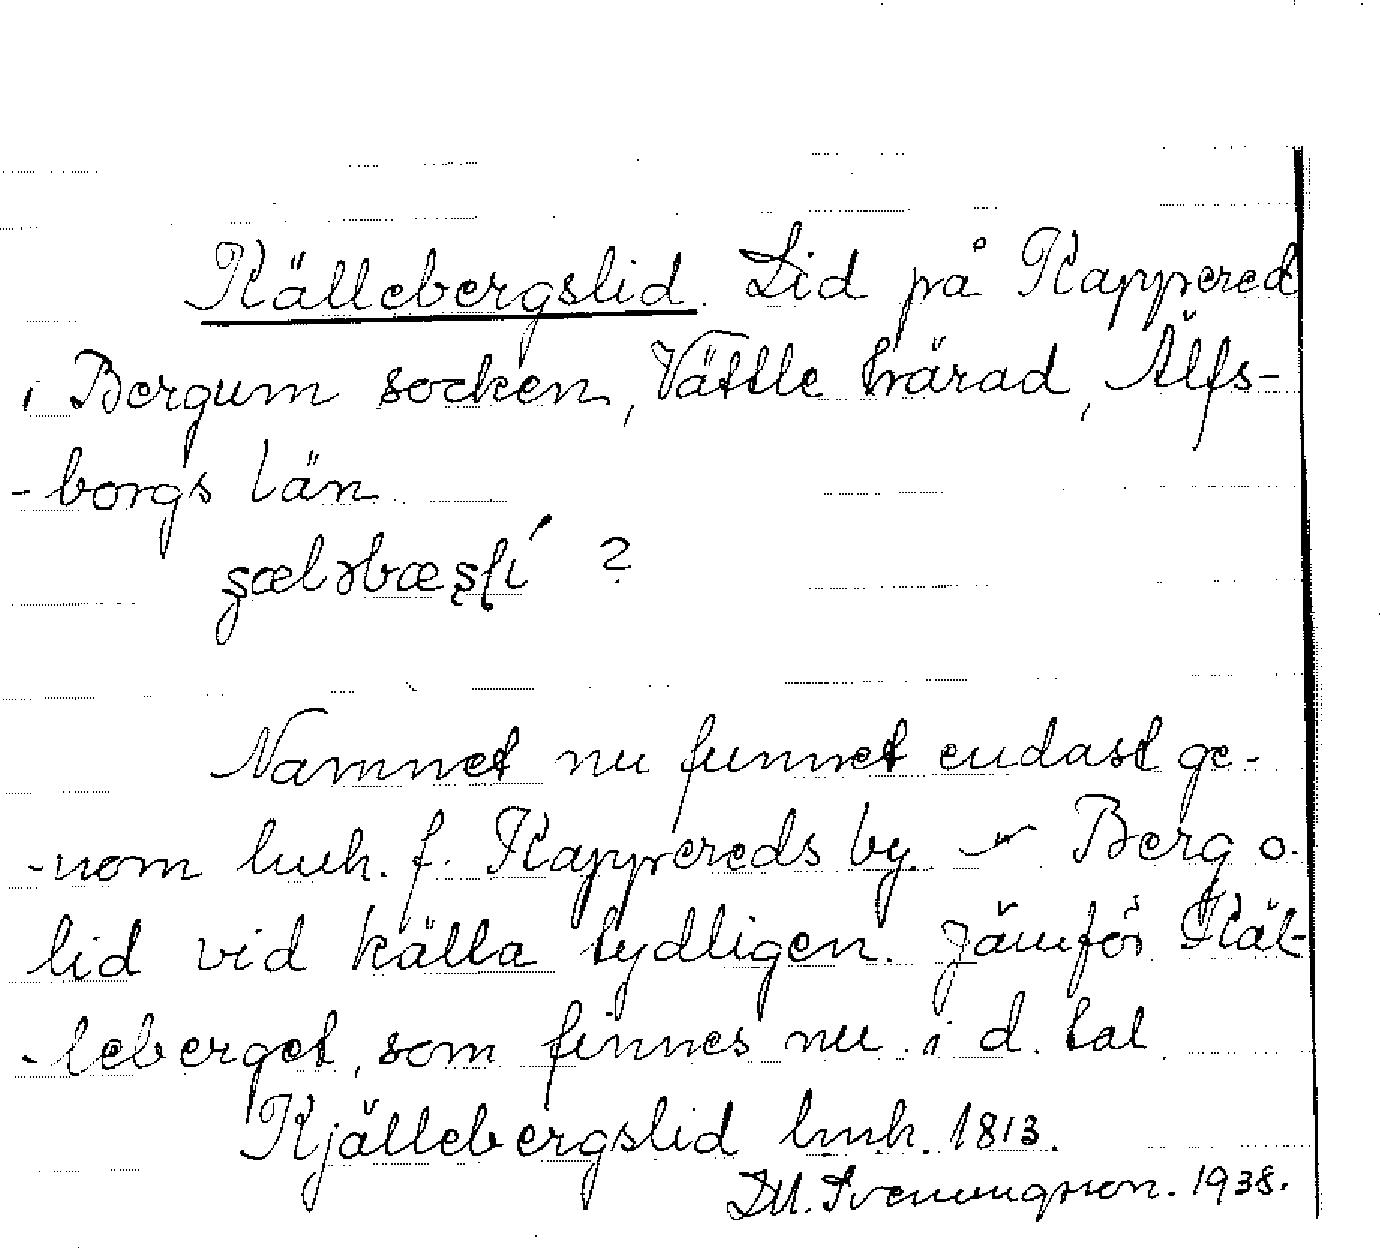 Källebergslid. Lid på Kappered
i Bergum socken, Vättle härad, Älfs-
-borgs län
ʂæləbæʂḷí ?
Namnet nu funnet endast ge-
-nom lmh. f. Kappereds by. Berg o.
lid vid källa tydligen. Jämför Käl-
-leberget, som finnes nu i d. tal
Kjällebergslid lmh. 1813.
D.U. Svenungsson. 1938.